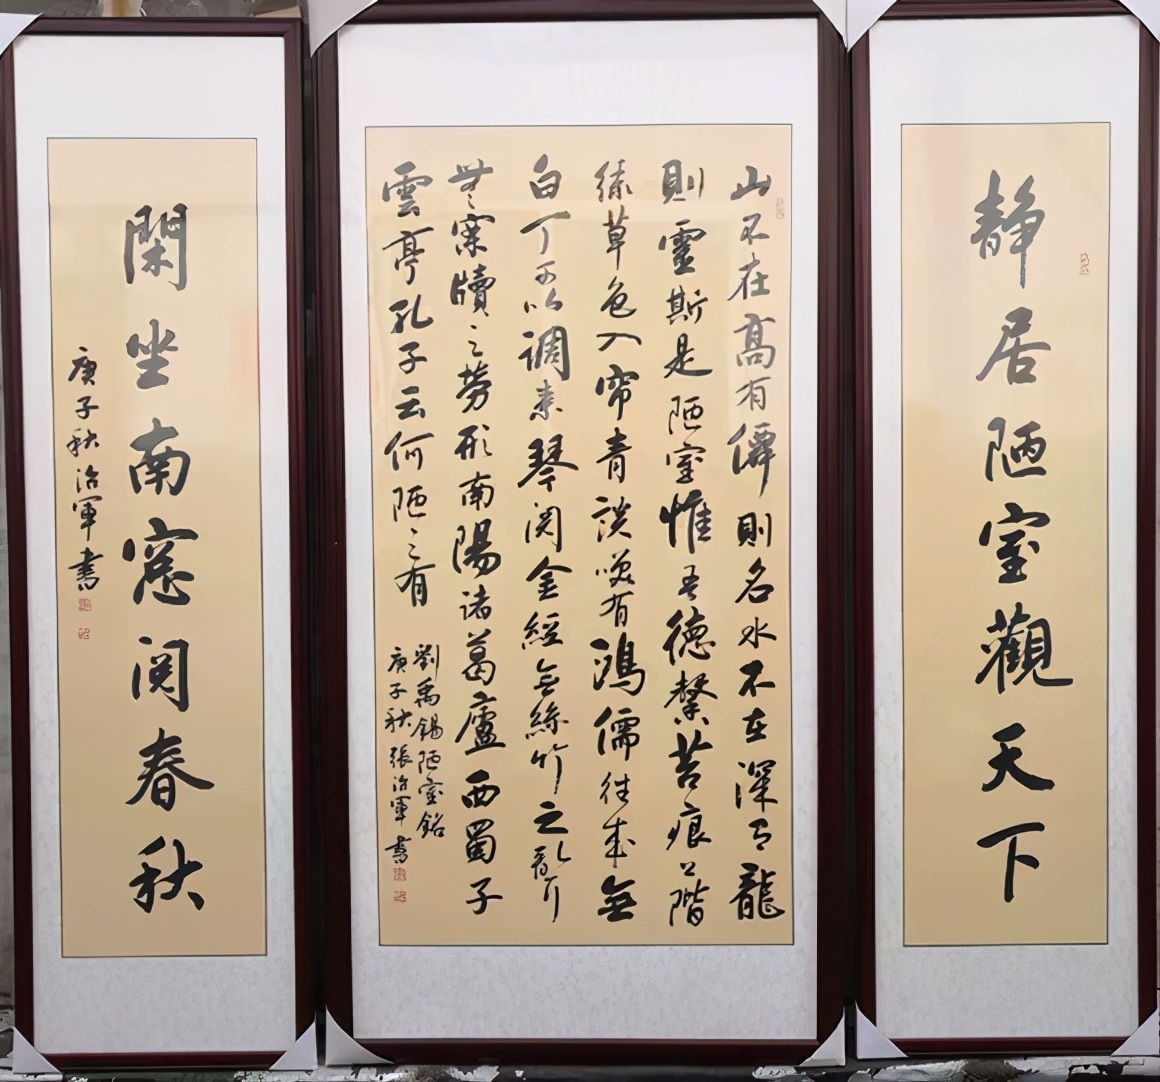 静居陋室觀天下
山不在高有僊則名水不在深有龍
則靈斯是陋室惟吾德馨苔痕上階
綠草色入帘青談笑有鴻儒往來無
白丁可以調素琴閱金經無絲竹之亂耳
無案牘之勞形南陽諸葛廬西蜀子
雲亭孔子云何陋之有
劉禹錫陋室銘
庚子秋張治軍書
閑坐南窓閱春秋
庚子秋治軍書